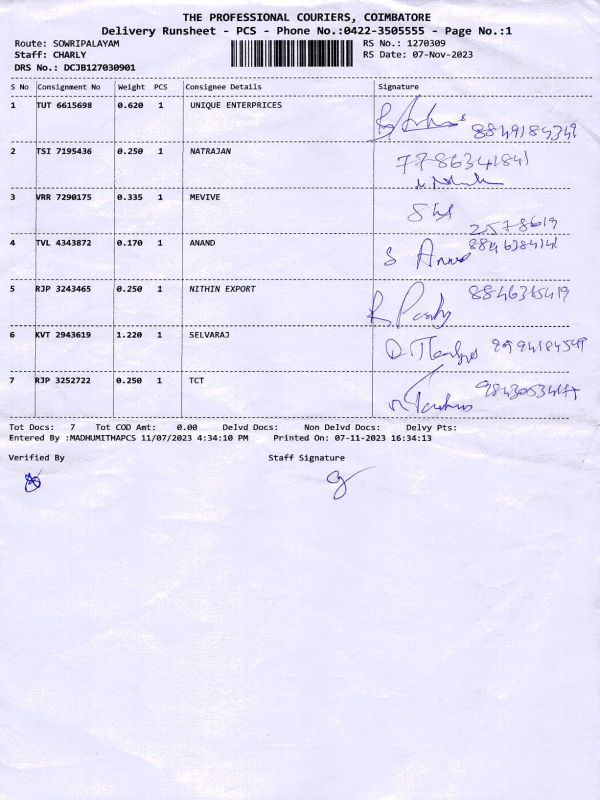 THE PROFESSIONAL COURIERS, COIMBATORE
Delivery Runsheet - PCS - Phone No.:0422-3505555 - Page No.:1
Route: SOWRIPALAYAM RS No.: 1270309
Staff: CHARLY RS Date: 07-Nov-2023
DRS No.: DCJB127030901
S No Consignment No Weight PCS Consignee Details Signature
1 TUT 6615698 0.620 1 UNIQUE ENTERPRICES
2 TSI 7195436 0.250 1 NATRAJAN
3 VRR 7290175 0.335 1 MEVIVE
2578619
4 TVL 4343872 0.170 1 ANAND
5 RJP 3243465 0.250 1 NITHIN EXPORT
8846365419
6 KVT 2943619 1.220 1 SELVARAJ
7 RJP 3252722 0.250 1 TCT
Tot Docs: 7 Tot COD Amt: 0.00 Delvd Docs: Non Delvd Docs: Delvy Pts:
Entered By :MADHUMITHAPCS 11/07/2023 4:34:10 PM Printed On: 07-11-2023 16:34:13
Verified By Staff Signature